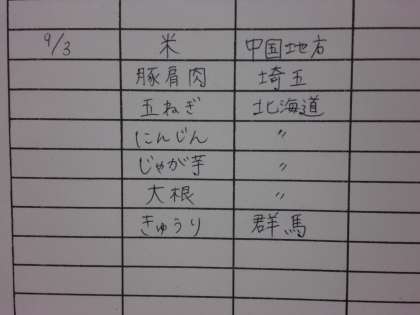 9/3 米 中国地方
豚肩肉 埼玉
玉ねぎ 北海道
にんじん 〃
じゃが芋 〃
大根 〃
きゅうり 群馬